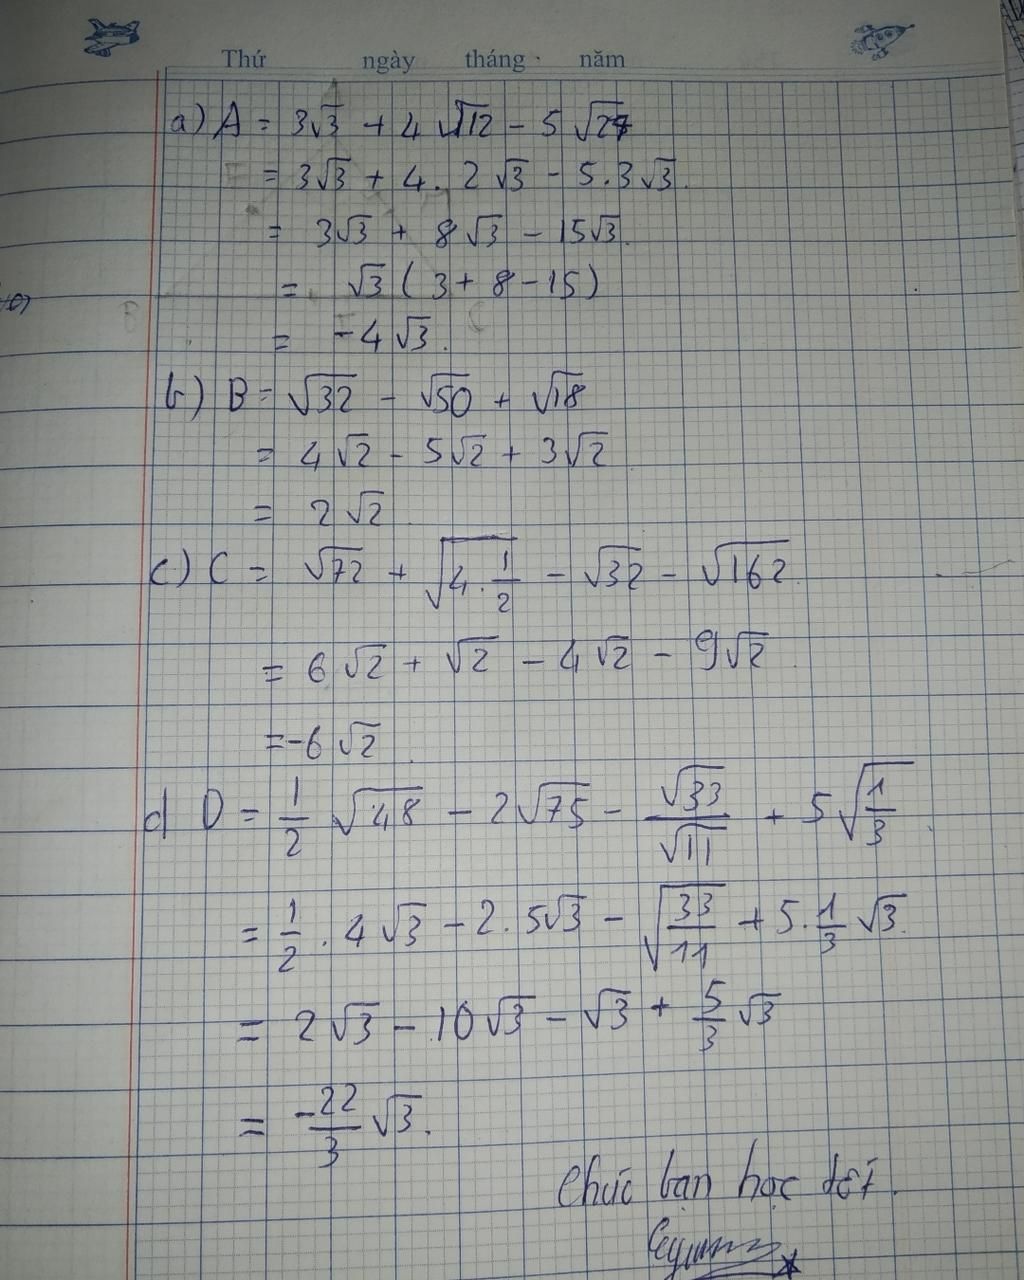 Thứ ngày tháng năm
a) A = 3√3 + 4√12 - 5√27
= 3√3 + 4. 2√3 - 5.3√3.
= 3√3 + 8√3 - 15√3.
= √3 ( 3 + 8 - 15)
= -4√3.
b) B = √32 - √50 + √18
= 4√2 - 5√2 + 3√2
= 2√2
c) C = √72 + √(4.1/2) - √32 - √162
= 6√2 + √2 - 4√2 - 9√2
= -6√2.
d D = 1/2 √48 - 2√75 - √33/√11 + 5√(1/3)
= 1/2 . 4√3 - 2. 5√3 - √(33/11) + 5.1/3 √3.
= 2√3 - 10√3 - √3 + 5/3 √3
= -22/3 √3.
Chúc bạn học tốt.